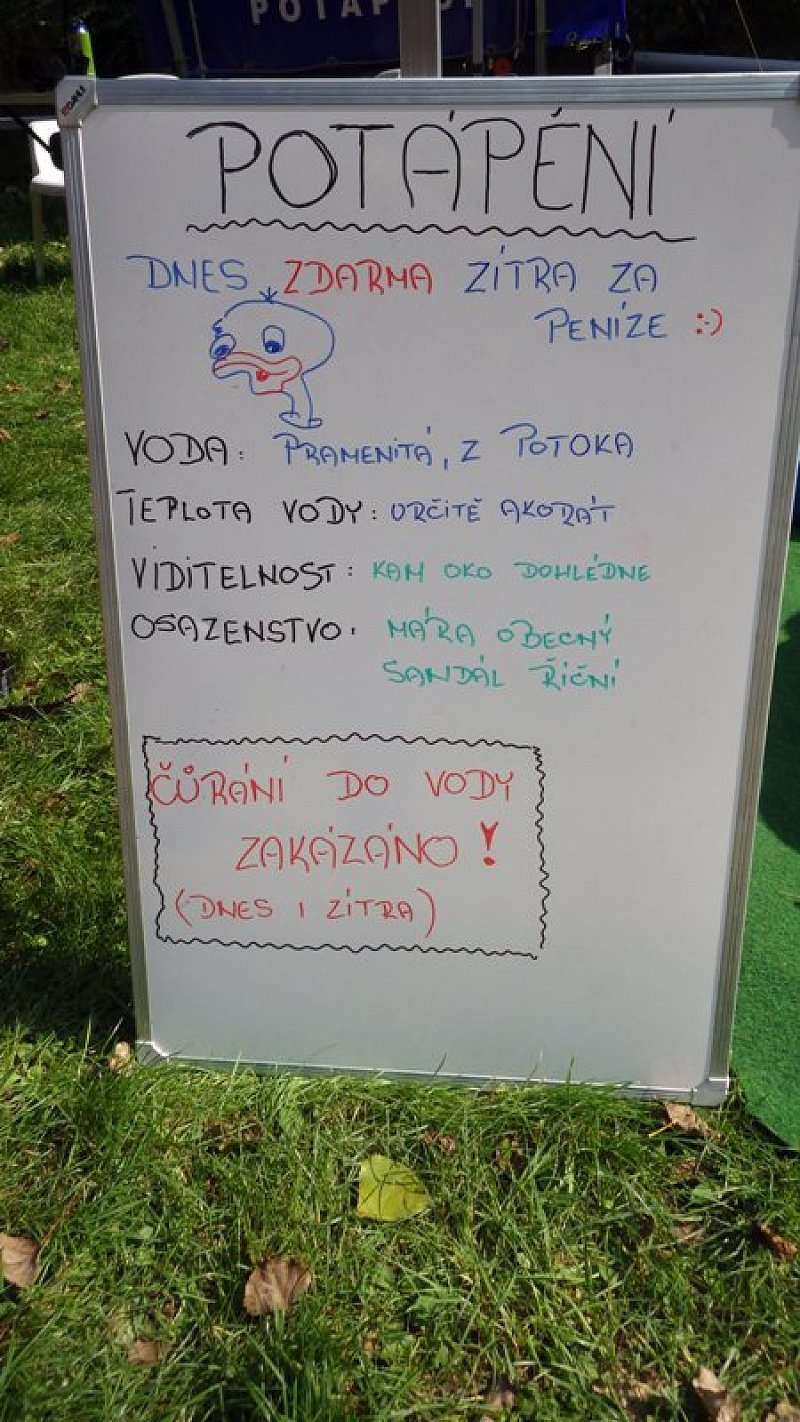 POTÁPĚNÍ
DNES ZDARMA ZÍTRA ZA
PENÍZE :-)
VODA: PRAMENITÁ, Z POTOKA
TEPLOTA VODY: URČITĚ AKORÁT
VIDITELNOST: KAM OKO DOHLÉDNE
OSAZENSTVO: MÁRA OBECNÝ
SANDÁL ŘÍČNÍ
ČŮRÁNÍ DO VODY
ZAKÁZÁNO!
(DNES I ZÍTRA)